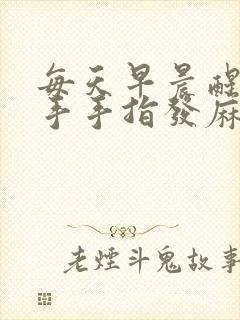 每天早晨醒
手手指發麻
老煙斗鬼故事